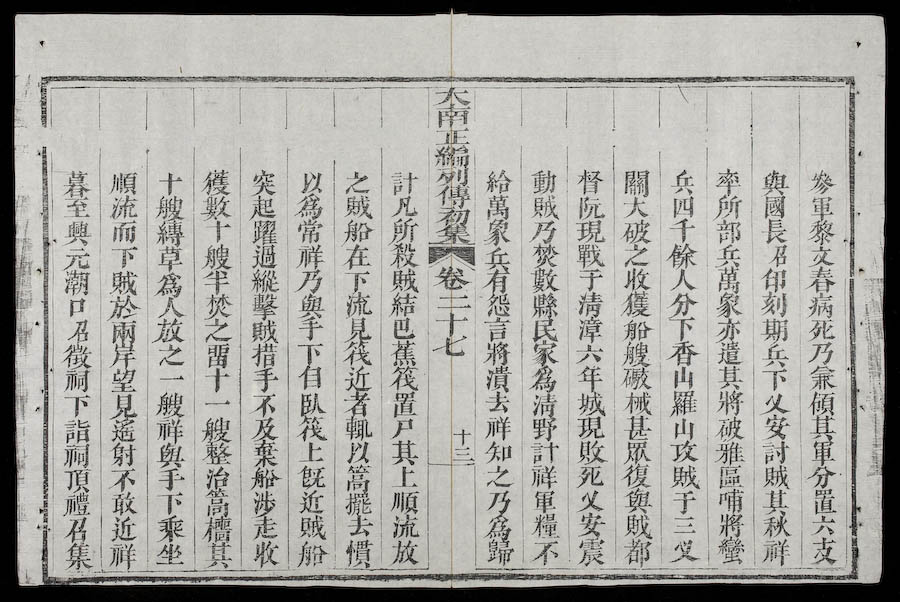 參軍黎文春病死乃兼領其軍分置六支
與國長召印刻期兵下乂安討賊其秋祥
率所部兵萬象亦遣其將破雅區哺將蠻
兵四千餘人分下香山羅山攻賊于三叉
關大破之收獲船艘礮械甚眾復與賊都
督阮現戰于清漳六年城現敗死乂安震
動賊乃焚數縣民家為清野計祥軍糧不
給萬象兵有怨言將潰去祥知之乃為歸
大南正編列傳初集 卷二十七 十三
計凡所殺賊結巴蕉筏置尸其上順流放
之賊船在下流見筏近者輒以篙擺去慣
以為常祥乃與手下自臥筏上既近賊船
突起躍過縱擊賊措手不及棄船涉走收
獲數十艘半焚之留十一艘整治篙檣其
十艘縛草為人放之一艘祥與手下乘坐
順流而下賊於兩岸望見遙射不敢近祥
暮至興元潮口召徵祠下詣祠頂禮召集